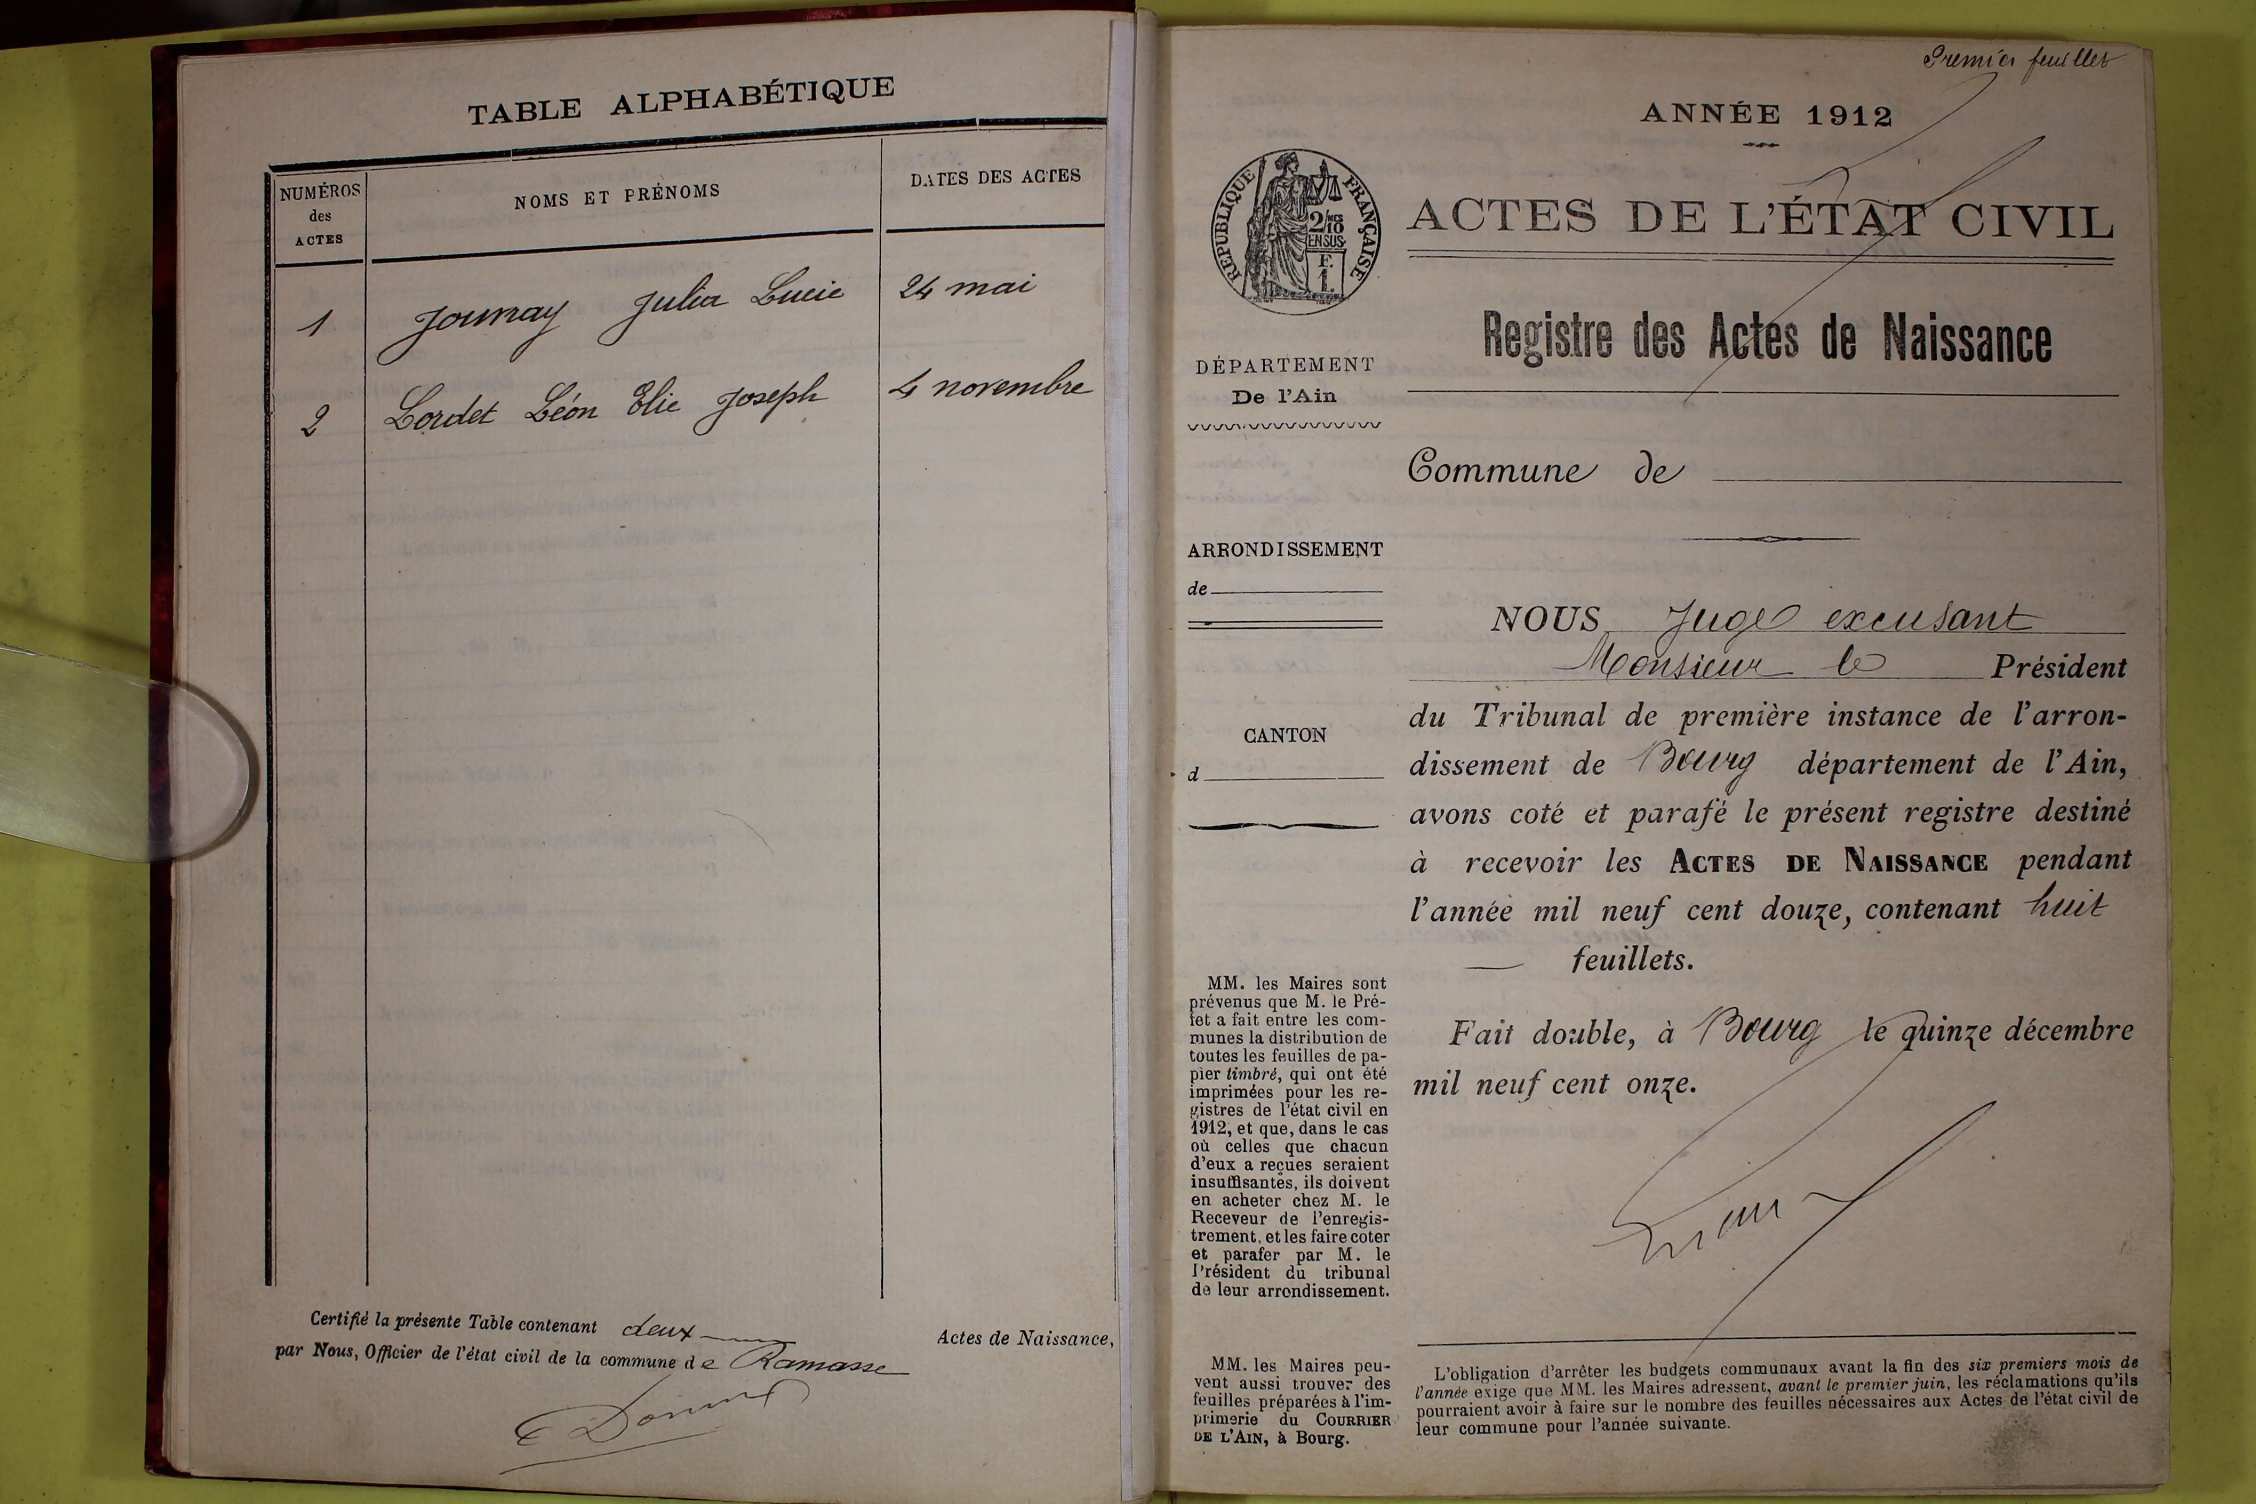 TABLE ALPHABÉTIQUE
NUMÉROS
des
ACTES
NOMS ET PRÉNOMS
DATES DES ACTES
1 Journay Julia Lucie 24 mai
2 Lordet Léon Elie Joseph 4 novembre
Certifié la présente Table contenant deux Actes de Naissance,
par Nous, Officier de l'état civil de la commune de Ramasse
Premier feuillet
ANNÉE 1912
RÉPUBLIQUE FRANÇAISE
2/10
EN SUS
F.
1.
DÉPARTEMENT
De l'Ain
ARRONDISSEMENT
de
CANTON
d
MM. les Maires sont
prévenus que M. le Pré-
fet a fait entre les com-
munes la distribution de
toutes les feuilles de pa-
pier timbré, qui ont été
imprimées pour les re-
gistres de l'état civil en
1912, et que, dans le cas
où celles que chacun
d'eux a reçues seraient
insuffisantes, ils doivent
en acheter chez M. le
Receveur de l'enregis-
trement, et les faire coter
et parafer par M. le
Président du tribunal
de leur arrondissement.
MM. les Maires peu-
vent aussi trouver des
feuilles préparées à l'im-
primerie du COURRIER
DE L'AIN, à Bourg.
ACTES DE L'ÉTAT CIVIL
Registre des Actes de Naissance
Commune de
NOUS Juge excusant
Monsieur le Président
du Tribunal de première instance de l'arron-
dissement de Bourg département de l'Ain,
avons coté et parafé le présent registre destiné
à recevoir les ACTES DE NAISSANCE pendant
l'année mil neuf cent douze, contenant huit
feuillets.
Fait double, à Bourg le quinze décembre
mil neuf cent onze.
L'obligation d'arrêter les budgets communaux avant la fin des six premiers mois de
l'année exige que MM. les Maires adressent, avant le premier juin, les réclamations qu'ils
pourraient avoir à faire sur le nombre des feuilles nécessaires aux Actes de l'état civil de
leur commune pour l'année suivante.